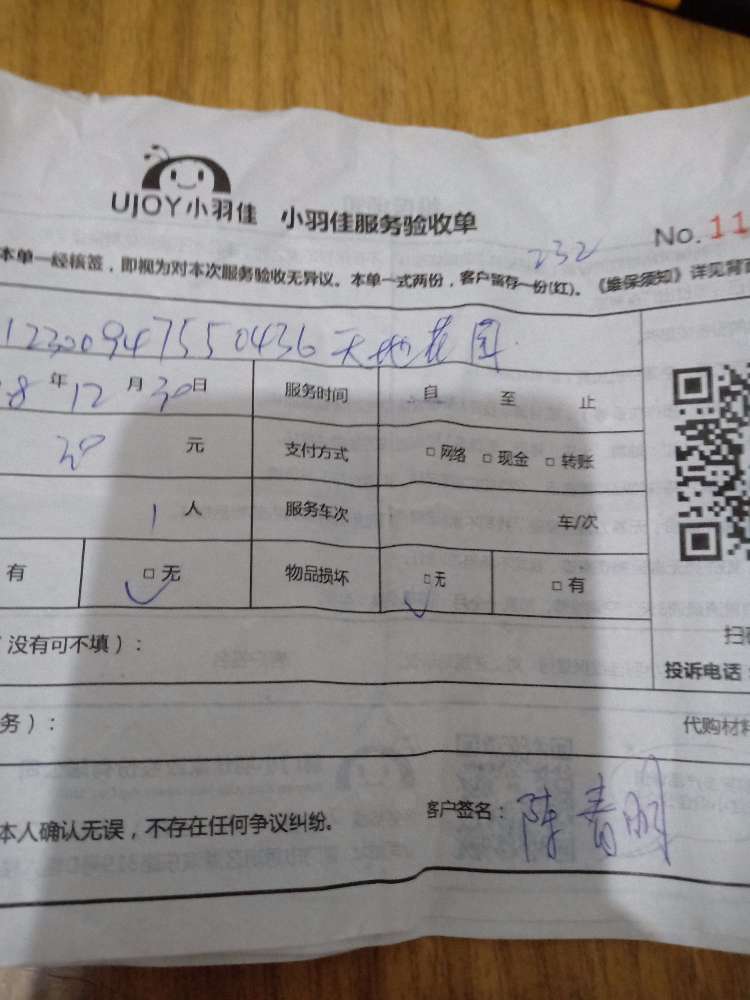 UJOY小羽佳 小羽佳服务验收单
No. 11
232
本单一经核签，即视为对本次服务验收无异议。本单一式两份，客户留存一份(红)。《维保须知》详见背面
12300947550436天地花园
8 年 12 月 30 日 服务时间 自 至 止
30 元 支付方式 □ 网络 □ 现金 □ 转账
1 人 服务车次 车/次
有 □ 无 物品损坏 □ 无 □ 有
没有可不填）：
投诉电话：
务）：
代购材料
本人确认无误，不存在任何争议纠纷。 客户签名：陈青